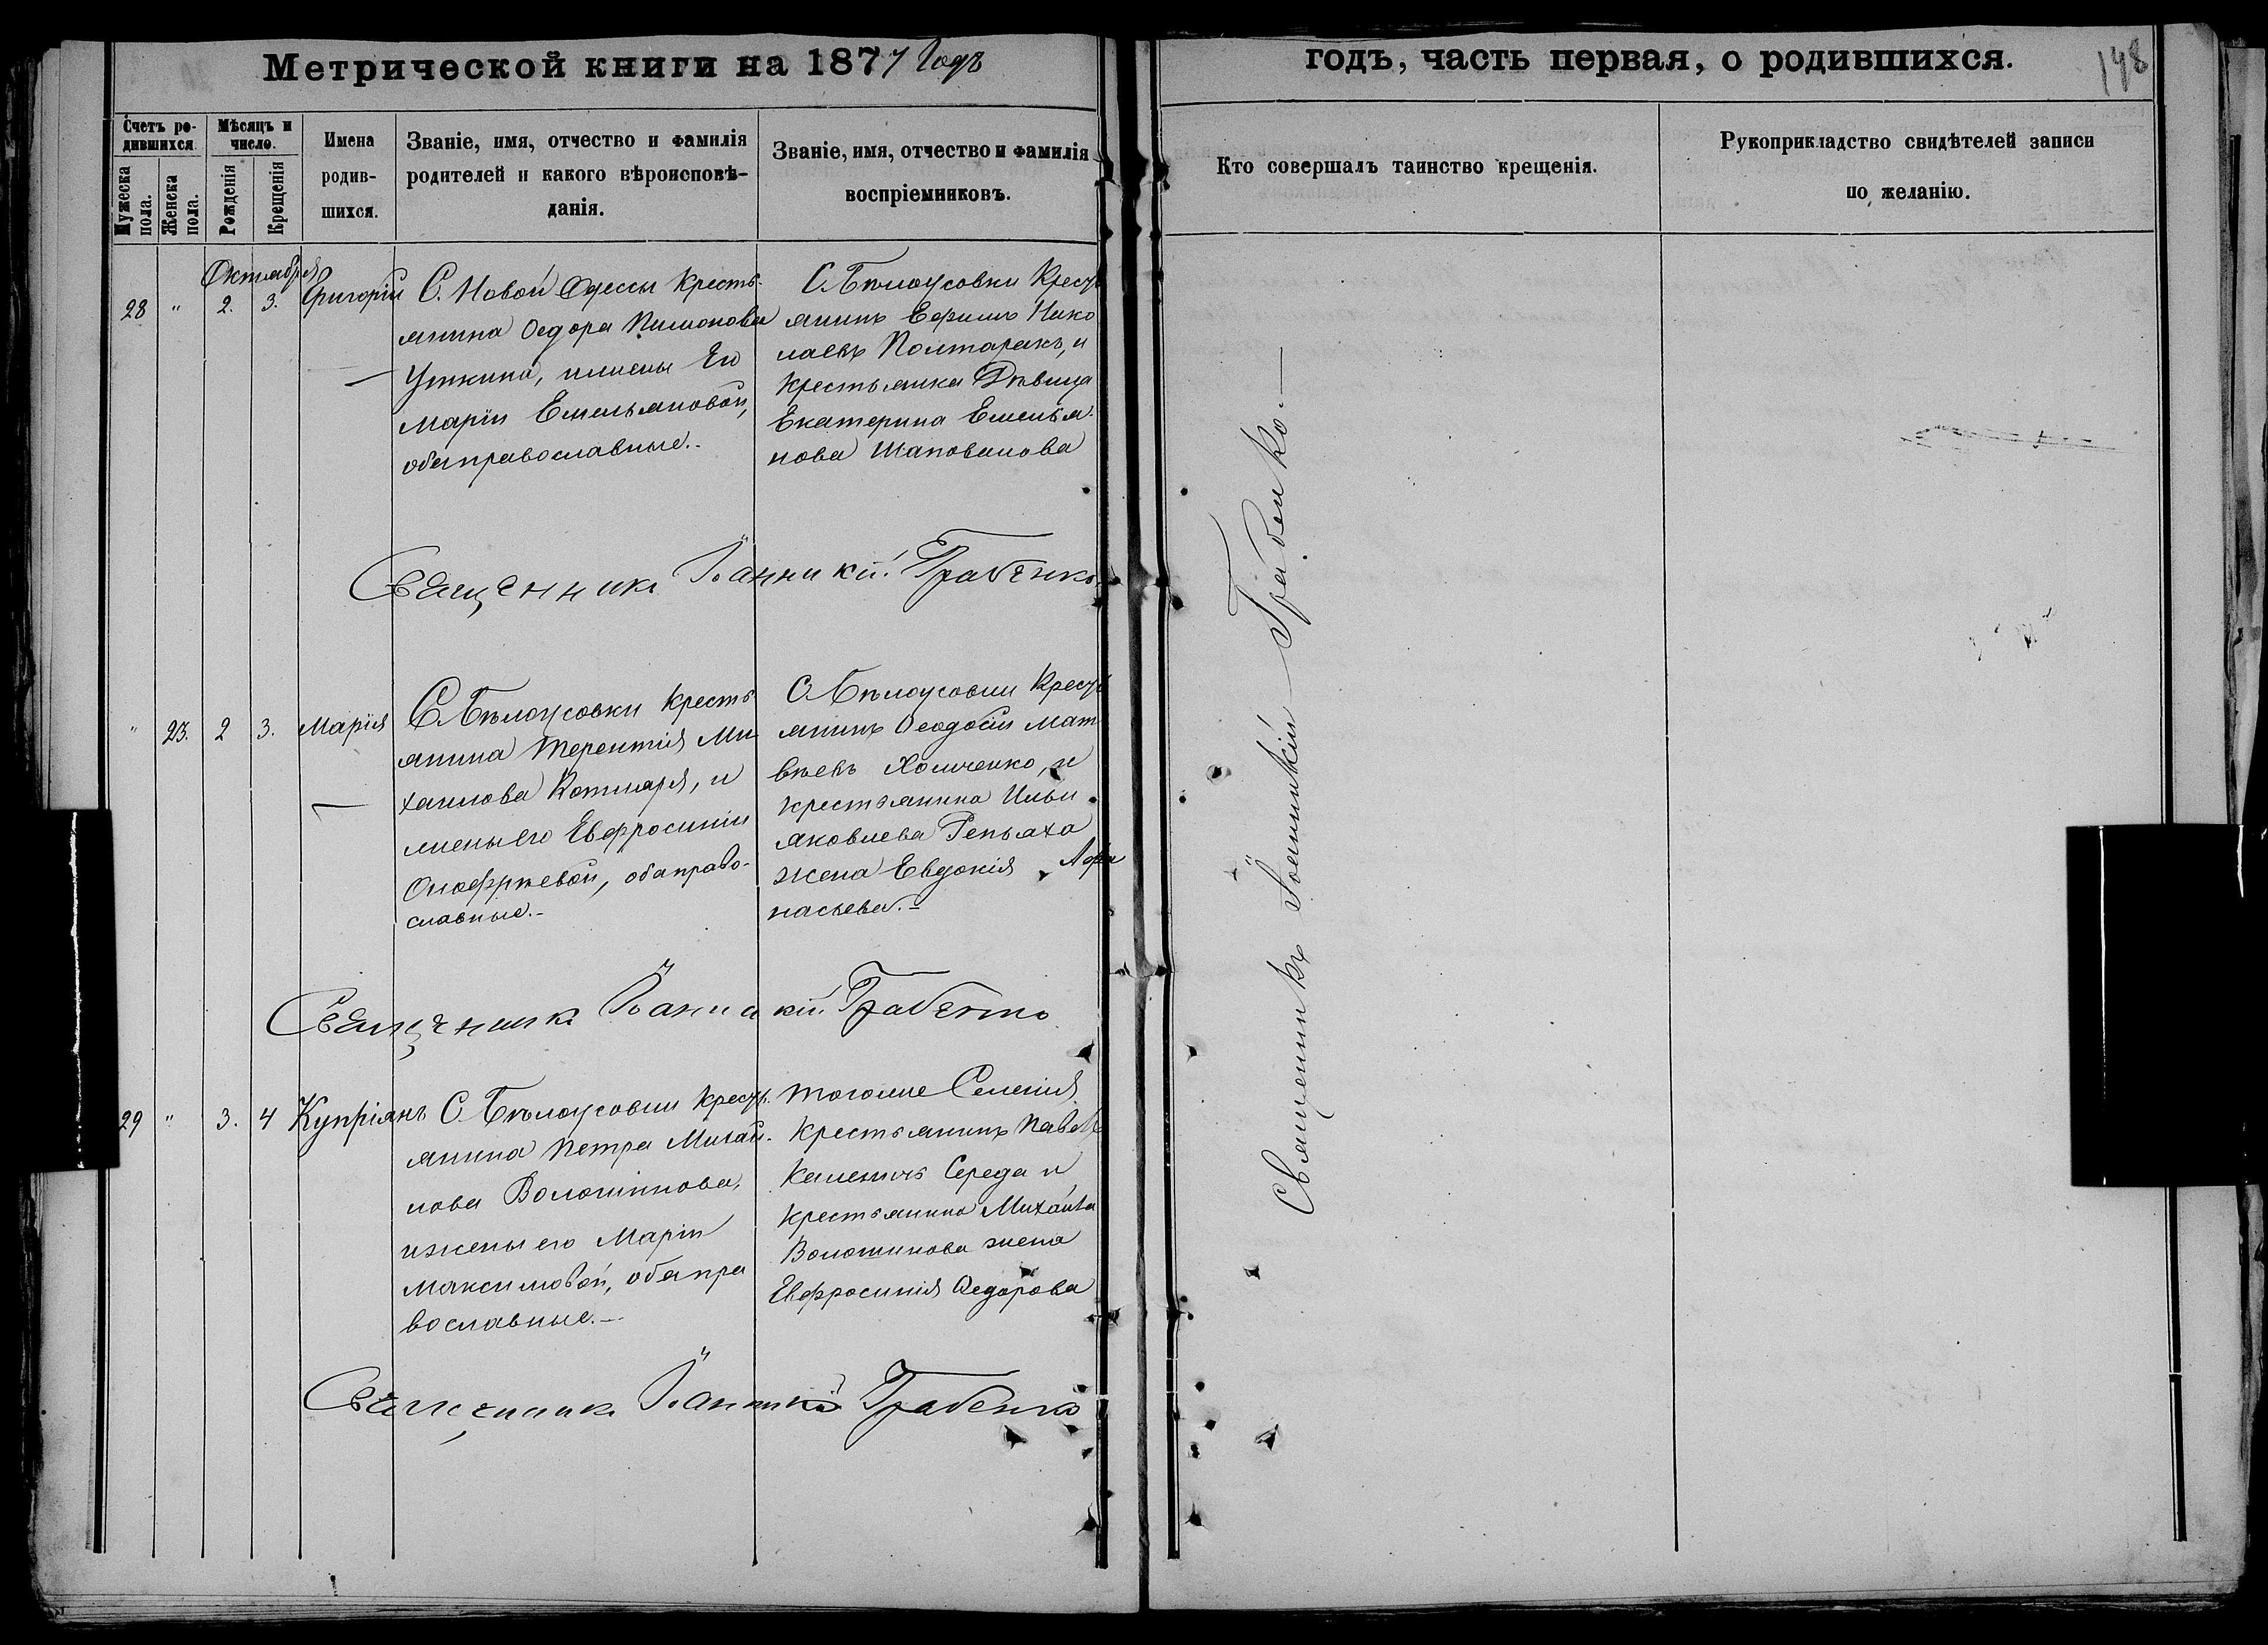 Метрической книги на 1877 Годъ
годъ, часть первая, о родившихся.
148
Счетъ ро-
дившихся.
Мужеска
пола.
Женска
пола.
Мѣсяцъ и
число.
Рожденія
Крещенія
Имена
родив-
шихся.
Званіе, имя, отчество и фамилія
родителей и какого вѣроисповѣ-
данія.
Званіе, имя, отчество и фамилія
воспріемниковъ.
Кто совершалъ таинство крещенія.
Рукоприкладство свидѣтелей записи
по желанію.
Октября
28 " 2. 3. Григорій
С. Новой Одессы Кресть-
янина Ѳедора Пимонова
Уткина, и жены Его
Маріи Емельяновой,
оба православные.-
С. Бѣлоусовки Кресть
янинъ Ефимъ Нико
лаевъ Полтаракъ, и
крестьянка Дѣвица
Екатерина Емелья-
нова Шаповалова
Священникъ Іоанникій Грабенко
" 23. 2 3. Марія
С. Бѣлоусовки Кресть
янина Терентія Ми
хаилова Котляря, и
жены его Евфросиніи
Онофріевой, оба право-
славные.-
С. Бѣлоусовки Кресть
янинъ Ѳеодосій Мат
вѣевъ Холиченко, и
крестьянина Ильи
Яковлева Репьяха
жена Евдокія Афа
насьева.-
Священникъ Іоанникій Грабенко
29 " 3. 4 Купріянъ
С. Бѣлоусовки Кресть-
янина Петра Михай-
лова Волошинова,
и жены его Маріи
Максимовой, оба пра
вославные.-
Тогоже Селенія
Крестьянинъ Павелъ
Середа и
Крестьянина Михаила
Волошинова жена
Евфросинія Ѳедорова
Священникъ Іоанникій Грабенко
Священникъ Іоанникій Грабенко.-